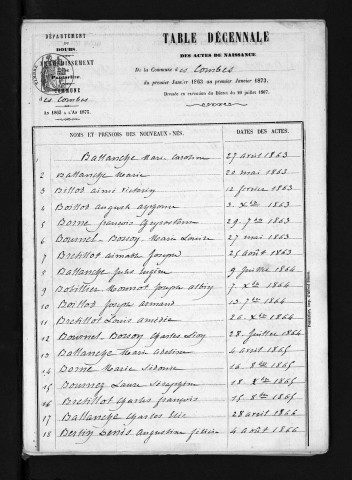 DÉPARTEMENT
du
DOUBS.
ARRONDISSEMENT
de
Pontarlier
COMMUNE
des Combes
AN 1863 à l'AN 1873.
TABLE DÉCENNALE
DES ACTES DE NAISSANCE
De la Commune des Combes
du premier Janvier 1863 au premier Janvier 1873,
Dressée en exécution du Décret du 20 juillet 1807.
NOMS ET PRÉNOMS DES NOUVEAUX-NÉS. DATES DES ACTES.
1 Ballanche Marie Caroline 27 avril 1863
2 Ballanche Marie 20 mai 1863
3 Billod aimé Victorin 12 février 1863
4 Boillod auguste 3 Xbre 1863
5 Borne françois 29 7bre 1863
6 Bournel-Bosson Marie Louise 27 mai 1863
7 Bretillot aimable Joseph 25 août 1863
8 Ballanche Jules Eugène 9 Juillet 1864
9 Bobillier Monnot Joseph albin 7 Xbre 1864
10 Boillod Joseph armand 13 7bre 1864
11 Bretillot Louis amédée 26 Xbre 1864
12 Bournel-Bosson Charles Léon 28 Juillet 1864
13 Ballanche Marie adeline 4 avril 1865
14 Borne Marie Sidonie 16 8bre 1865
15 Bournez Laure Séraphine 18 Xbre 1865
16 Bretillot Charles françois 15 8bre 1865
17 Ballanche Charles Elie 28 avril 1866
18 Bertin Denis augustine 4 août 1866